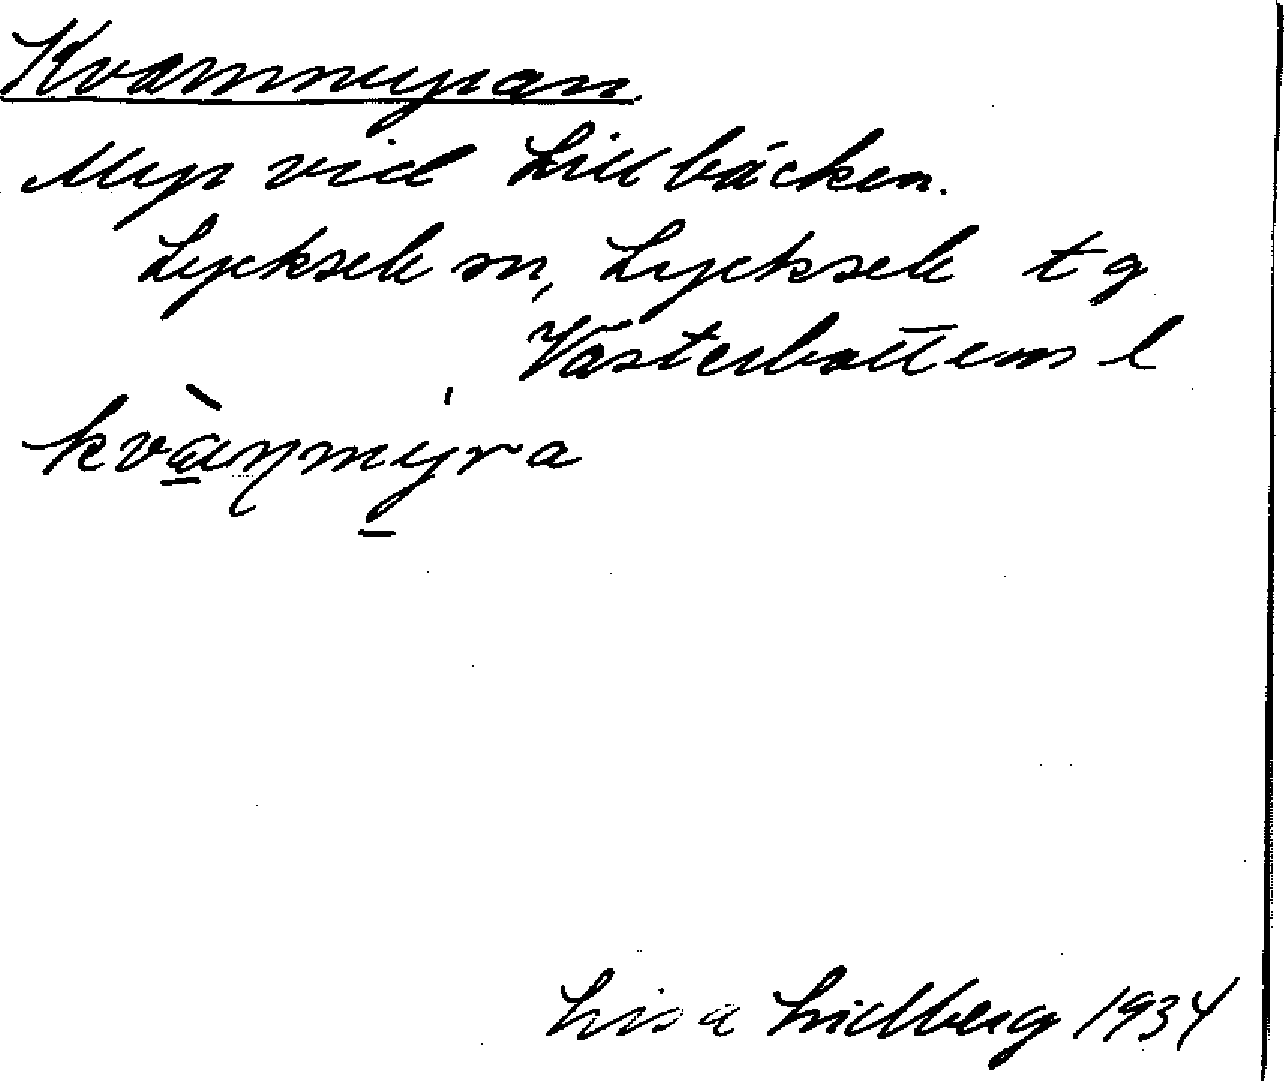 Kvarnmyran.
Myr vid Lillbäcken.
Lycksele sn, Lycksele tg
Västerbottens l
kvàṇmy̱ra
Lisa Lidberg 1934